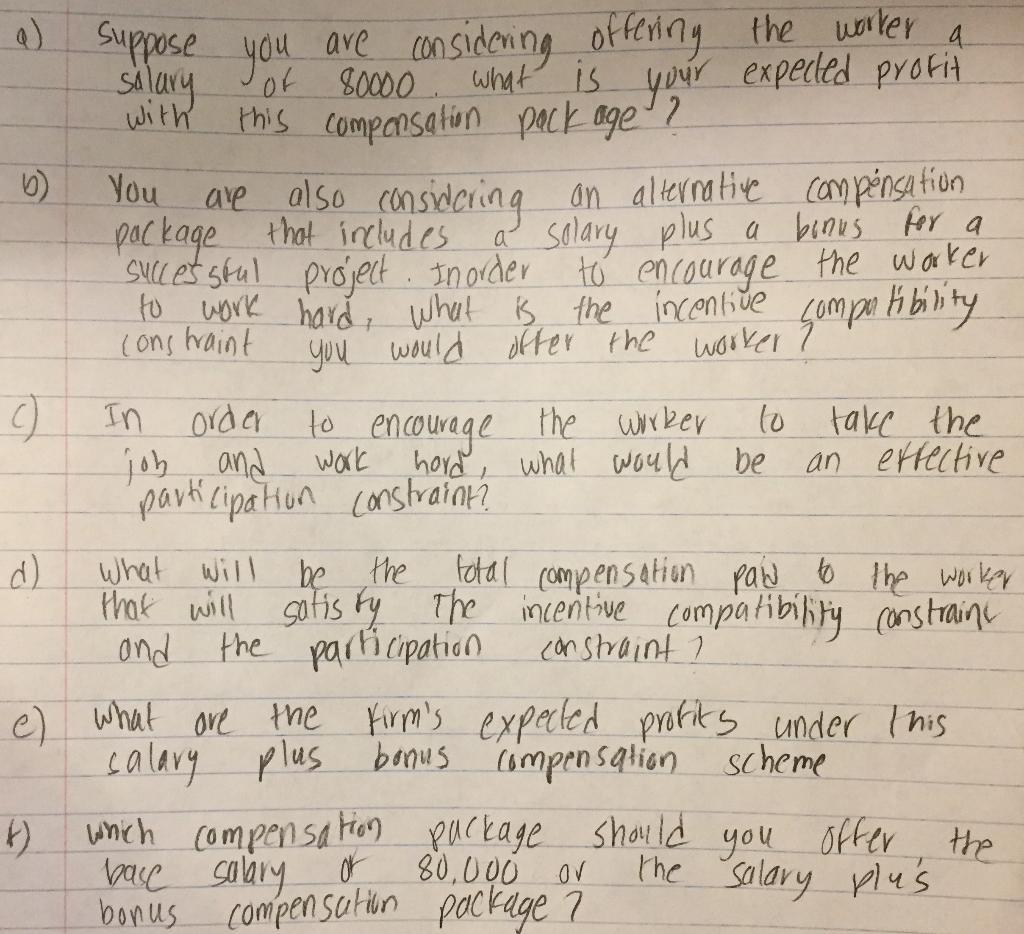 a) Suppose you are considering offering the worker a
salary of 80000. what is your expected profit
with this compensation package?
b) You are also considering an alternative compensation
package that includes a salary plus a bonus for a
successful project. Inorder to encourage the worker
to work hard, what is the incentive compatibility
constraint you would offer the worker?
c) In order to encourage the worker to take the
job and work hard, what would be an effective
participation constraint?
d) What will be the total compensation paid to the worker
that will satisfy The incentive compatibility constraint
and the participation constraint?
e) What are the firm's expected profits under this
salary plus bonus compensation scheme
f) which compensation package should you offer, the
base salary of 80,000 or the salary plus
bonus compensation package?